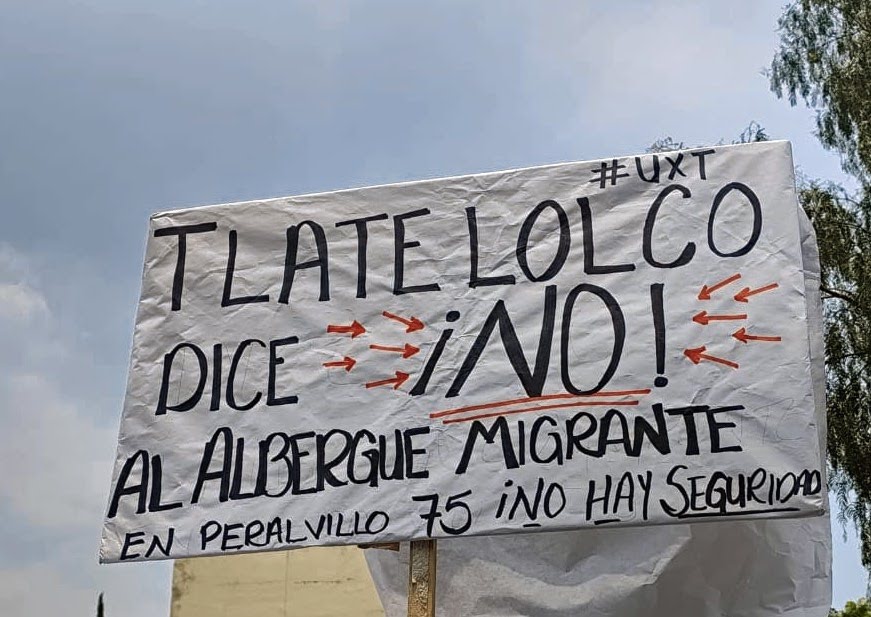 #UXT
TLATELOLCO
DICE ¡NO!
AL ALBERGUE MIGRANTE
EN PERALVILLO 75 ¡NO HAY SEGURIDAD